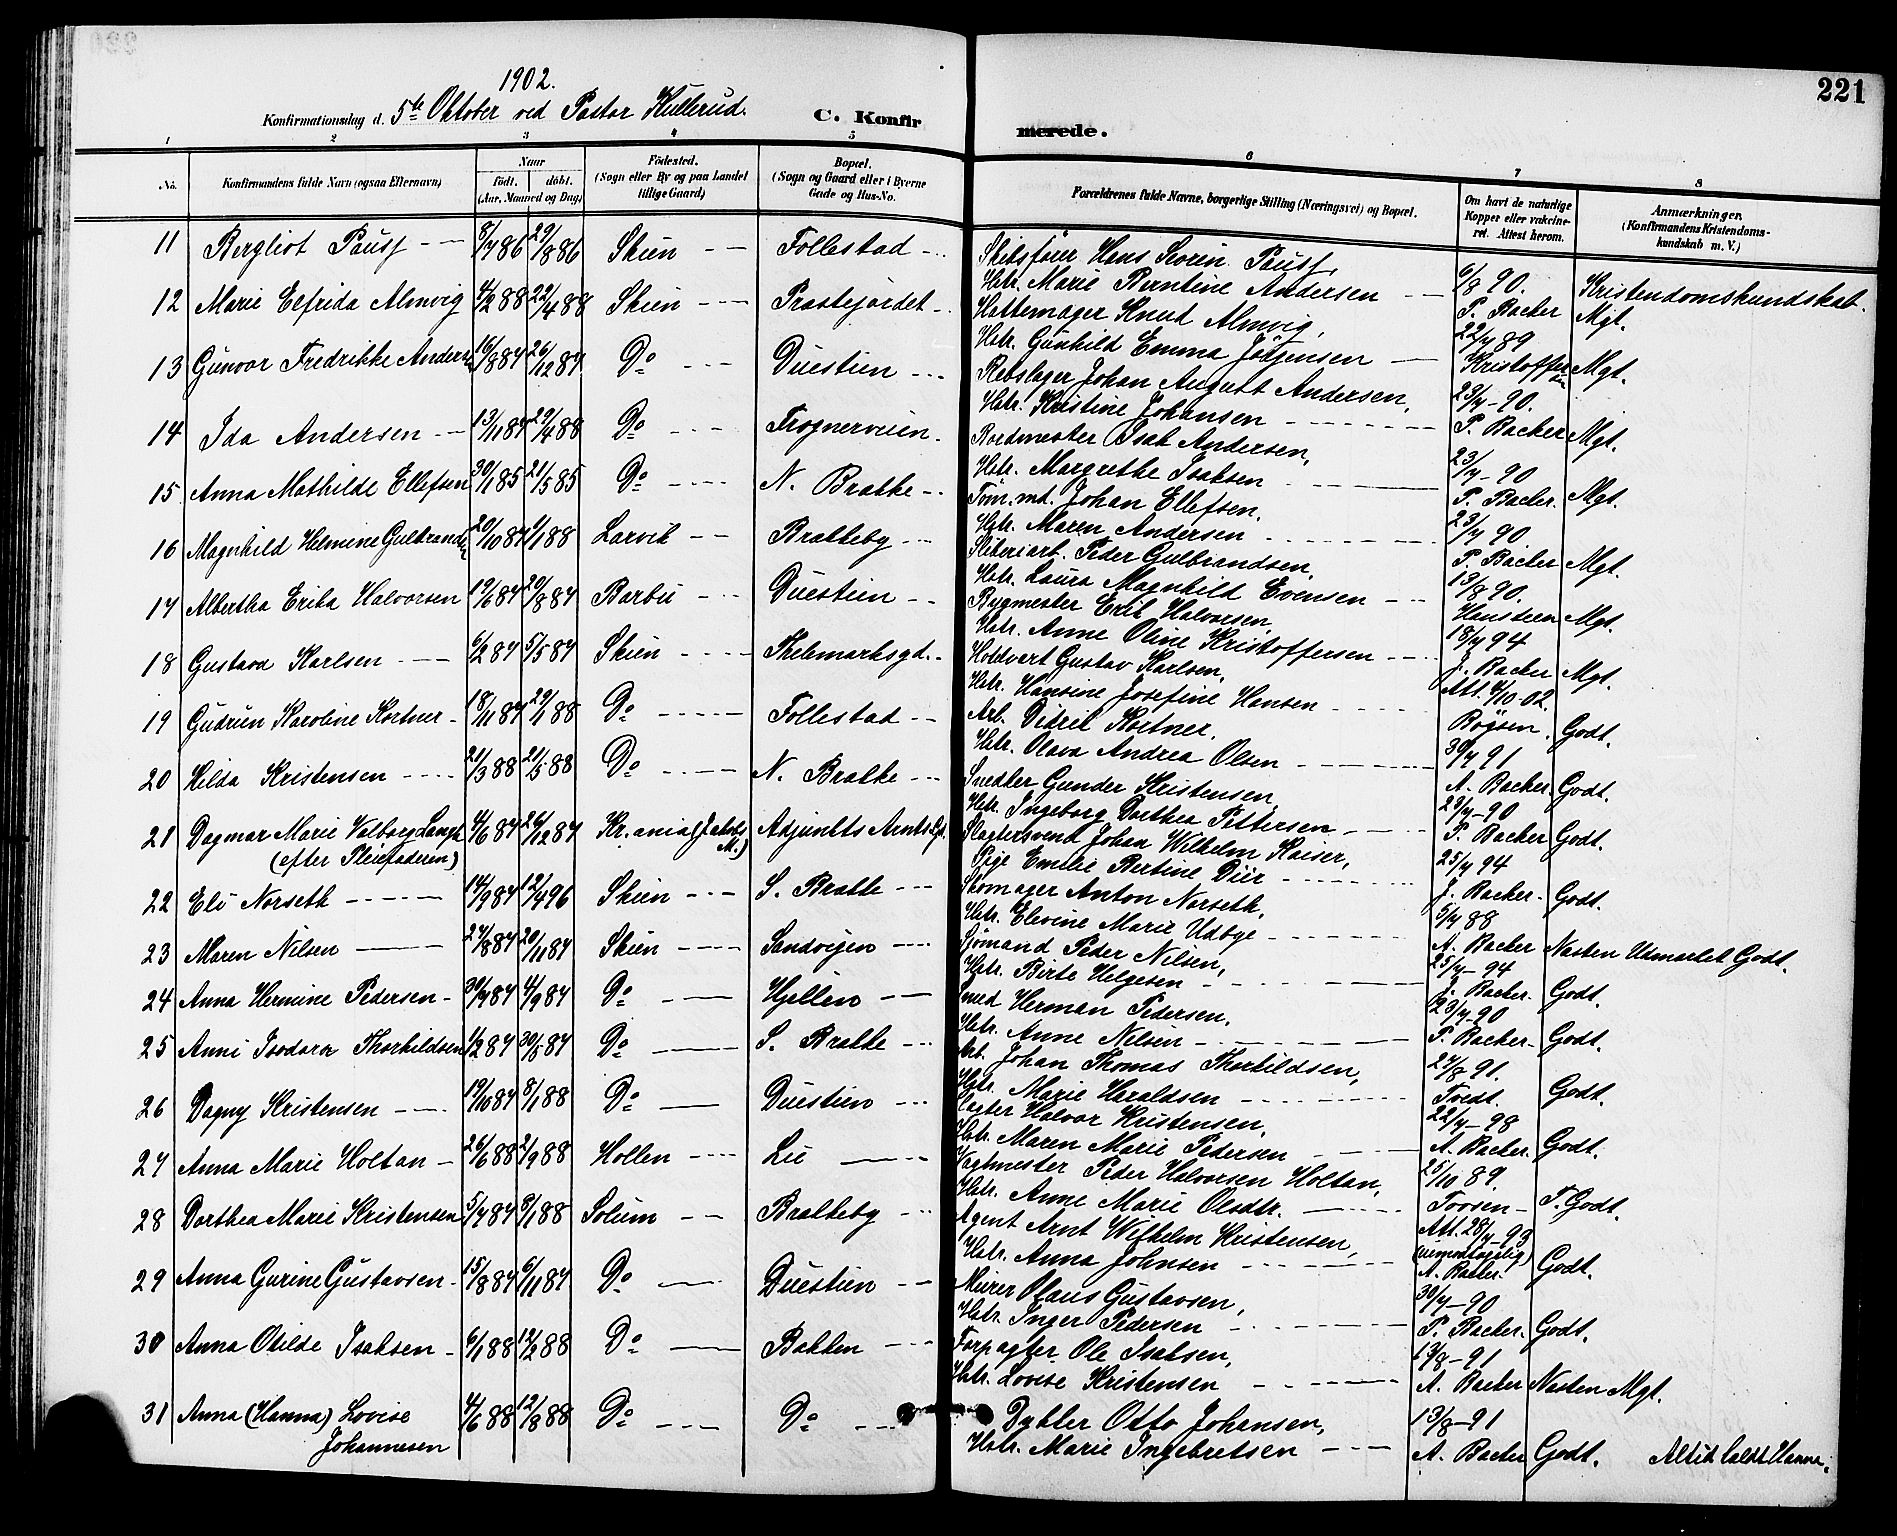 221
1902.
Konfirmationsdag d. 5te Oktober ved Pastor Kullerud.
C. Konfirmerede.
1 2 3 4 5 6 7 8
No.
Konfirmandens fulde Navn (ogsaa Efternavn)
Naar
født. døbt.
(Aar, Maaned og Dag)
Fødested.
(Sogn eller By og paa Landet
tillige Gaard)
Bopæl.
(Sogn og Gaard eller i Byerne
Gade og Hus-No.
Forældrenes fulde Navne, borgerlige Stilling (Næringsvei) og Bopæl.
Om havt de naturlige
Kopper eller vakcine-
ret. Attest herom.
Anmærkninger.
(Konfirmandens Kristendoms-
kundskab m. V.)
11 Bergliot Pauss 8/7 86 29/8 86 Skien Follestad
Skibsfører Hans Severin Pauss,
Hstr. Marie Berntine Andersen
6/8 90.
P. Backer
Kristendomskundskab.
Mgt.
12 Marie Elfrida Almvig 4/2 88 22/4 88 Skien Præstejordet
Hattemager Knud Almvig,
Hstr. Gunhild Emma Jörgensen
22/7 89
Kristoffersen
Mgt.
13 Gunvor Fredrikke Andersen 16/8 87 26/12 87. Do Duestien
Rebslager Johan August Andersen,
Hstr. Kristine Johansen
23/7-90.
P. Backer
Mgt.
14 Ida Andersen 13/11 87 29/4 88 Do Frognerveien.
Rodemester Isak Andersen,
Hstr. Margrethe Isaksen
23/7-90
P. Backer.
Mgt.
15 Anna Mathilde Ellefsen 30/1 85 21/5 85 Do N. Brække
Töm.md. Johan Ellefsen.
Hstr. Maren Andersen
23/7 90.
P. Backer
Mgt.
16 Magnhild Helmine Gulbrandsen 20/10 87 1/1 88 Larvik Brækkeby
Sliberiarb. Peder Gulbrandsen,
Hstr. Laura Magnhild Evensen
13/8 90.
Hansteen
Mgt.
17 Albertha Erika Halvorsen 19/6 87 20/8 87 Barbu Duestien
Bygmester Erik Halvorsen,
Hstr. Anne Oline Kristoffersen
18/7 94
J. Backer
Mgt.
18 Gustava Karlsen 6/2 87 5/5 87 Skien Thelemarksgd.
Holdvert Gustav Karlsen,
Hstr. Hansine Josefine Hansen
Att. 4/10-02.
Bøgsen.
Godt.
19 Gudrun Karoline Kortner 18/11 87 29/1 88 Do Follestad
Arb. Didrik Kortner.
Hstr. Olava Andrea Olsen
30/7 91
A. Backer.
Godt.
20 Hilda Kristensen 21/3 88 21/5 88 Do N. Brække
Snedker Gunder Kristensen,
Hstr. Ingeborg Dorthea Pettersen
29/7-90
P. Backer
Godt.
21 Dagmar Marie Valborg Lange 4/6 87 26/12 87 Kr.ania (Jakobs M.) Adjunkts Arntsgd.
(efter Pleiefaderen)
Slagtersvend Johan Wilhelm Kaiser,
Pige Emelie Bertine Diir
25/7 94
J. Backer
Godt.
22 Eli Norseth 14/9 87 12/4 96 Skien S. Brække
Skomager Anton Norseth,
Hstr. Elevine Marie Udbye
5/7 88
A. Backer
Næsten Udmærket Godt.
23 Maren Nilsen 27/8 87 20/11 87 Skien Sandvigen
Sjømand Peder Nilsen,
Hstr. Birte Helgesen
25/7-94
J. Backer.
Godt.
24 Anna Hermine Pedersen 30/7 87 4/9 87 Do Hjellen
Smed Herman Pedersen.
Hstr. Anne Nilsen
23/7-90
P. Backer
Godt.
25 Anni Isodora Thorkildsen 1/2 87 30/5 87 Do S. Brække
Arb. Johan Thomas Thorkildsen,
Hstr. Marie Haraldsen
27/8 91.
Tvedt.
Godt.
26 Dagny Kristensen 19/10 87 8/1 88 Do Duestien
Slagter Halvor Kristensen,
Hstr. Maren Marie Pedersen
22/7-98
A. Backer.
Godt.
27 Anna Marie Holtan 26/6 88 2/9 88 Hollen Lie
Vagtmester Peder Halvorsen Holtan,
Hstr. Anne Marie Olsdtr.
25/10 89.
Tovsen
T. Godt.
28 Dorthea Marie Kristensen 5/7 87 8/1 88 Solum Brækkeby
Agent Arnt Wilhelm Kristensen,
Hstr. Anna Johnsen
Att. 28/7-93
(uimodtagelig)
A. Backer.
Godt.
29 Anna Gurine Gustavsen 15/8 87 6/11 87 Do Duestien
Murer Olaus Gustavsen,
Hstr. Inger Pedersen
30/7-90
P. Backer.
Godt.
30 Anna Otilde Isaksen 6/1 88 12/2 88 Do Bakken
Forpagter Ole Isaksen,
Hstr. Lovise Kristensen
13/8-91
A. Backer
Næsten Mgt.
31 Anna (Hanna) Lovise 4/6 88 12/8 88 Do Do
Johannesen
Dykker Otto Johansen,
Hstr. Marie Ingebretsen
13/8-91
A. Backer
Godt. Altid kaldt Hanna.